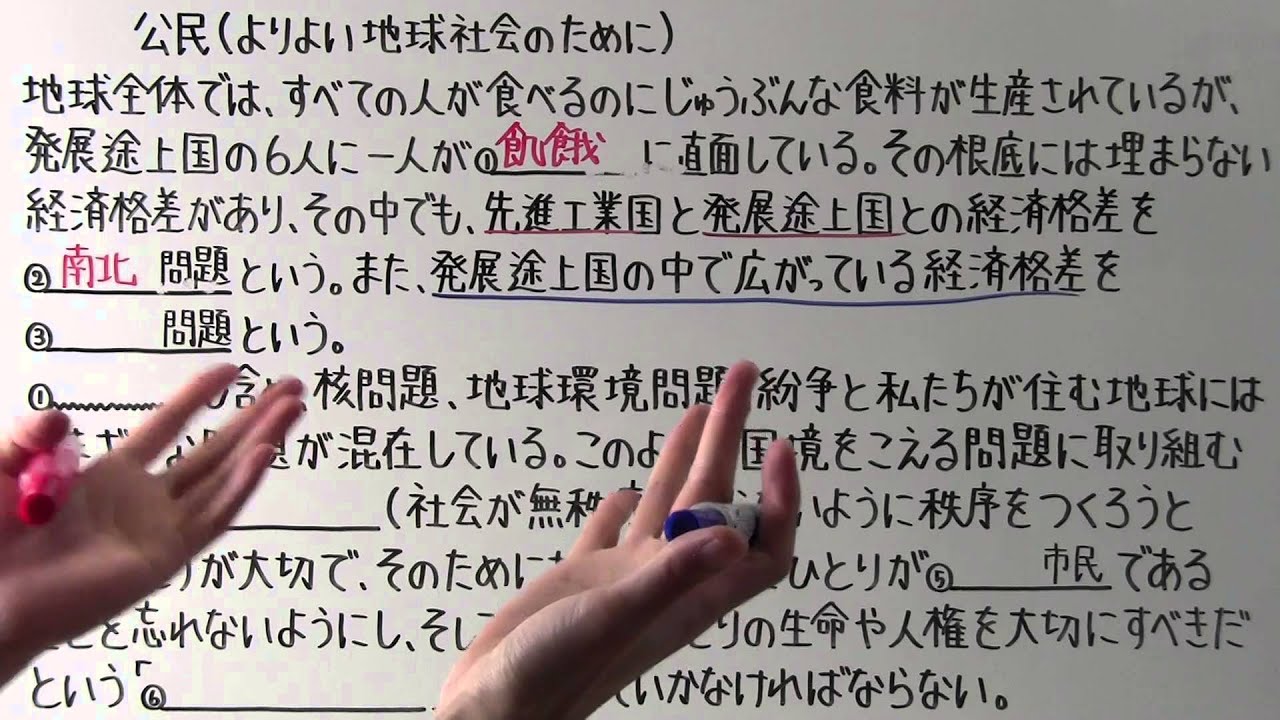 公民(よりよい地球社会のために)
地球全体では、すべての人が食べるのにじゅうぶんな食料が生産されているが、
発展途上国の6人に一人が①飢餓に直面している。その根底には埋まらない
経済格差があり、その中でも、先進工業国と発展途上国との経済格差を
②南北問題という。また、発展途上国の中で広がっている経済格差を
③問題という。
①核問題、地球環境問題 紛争と私たちが住む地球には
が混在している。このよ 国境をこえる問題に取り組む
(社会が無秩 ように秩序をつくろうと
りが大切で、そのために ひとりが⑤市民である
とを忘れないようにし、そし とりの生命や人権を大切にすべきだ
という「⑥ ていかなければならない。